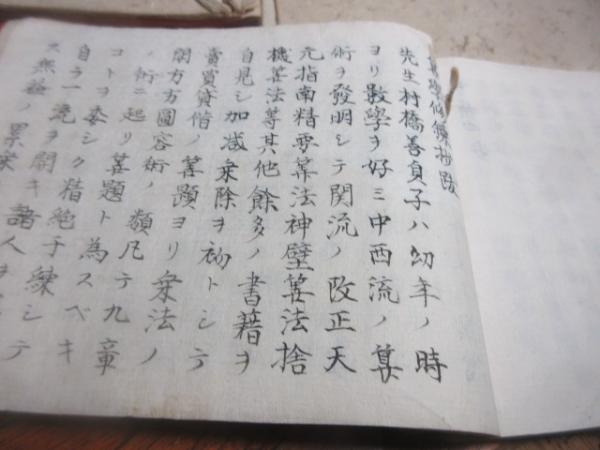 先生村橋善貞子ハ幼年ノ時
ヨリ數學ヲ好ミ中西流ノ算
術ヲ發明シテ関流ノ改正天
元指南精要筭法神壁筭法捨
機筭法等其他餘多ノ書籍ヲ
自見シ加減乗除ヲ初トシテ
賣買貸借ノ筭題ヨリ乗法ノ
開方方圖容術ノ類凡テ九章
ノ術ニ起リ筭題ト為スベキ
コトヲ委シク精純手練シテ
自ラ一流ヲ開キ諸人ヲ